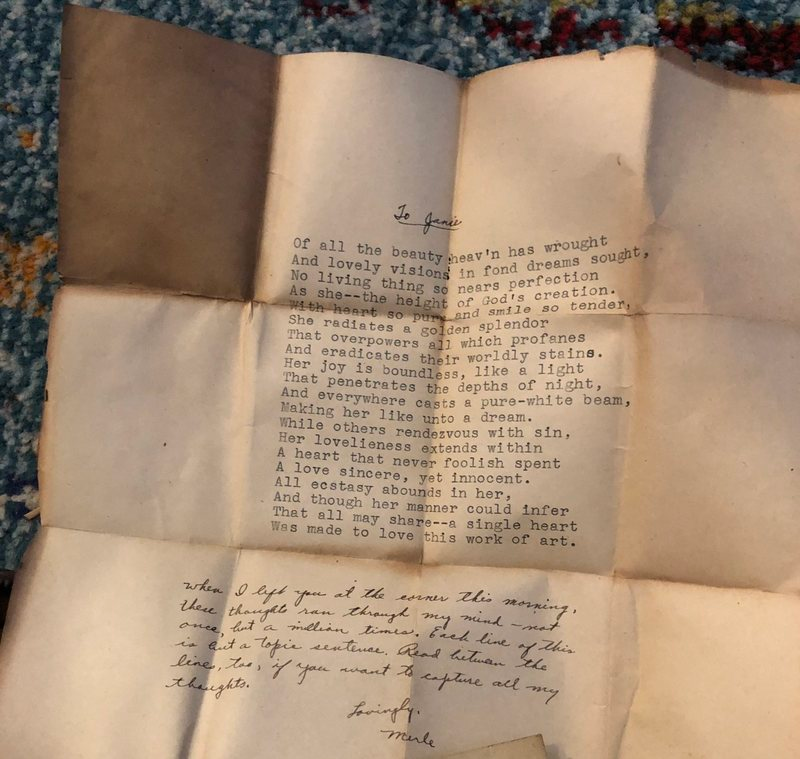 To Janie
Of all the beauty heav'n has wrought
And lovely visions in fond dreams sought,
No living thing so nears perfection
As she--the height of God's creation.
With heart so pure and smile so tender,
She radiates a golden splendor
That overpowers all which profanes
And eradicates their worldly stains.
Her joy is boundless, like a light
That penetrates the depths of night,
And everywhere casts a pure-white beam,
Making her like unto a dream.
While others rendezvous with sin,
Her lovelieness extends within
A heart that never foolish spent
A love sincere, yet innocent.
All ecstasy abounds in her,
And though her manner could infer
That all may share--a single heart
Was made to love this work of art.
When I left you at the corner this morning,
these thoughts ran through my mind - not
once, but a million times. Each line of this
is but a topic sentence. Read between the
lines, too, if you want to capture all my
thoughts.
Lovingly,
Merle